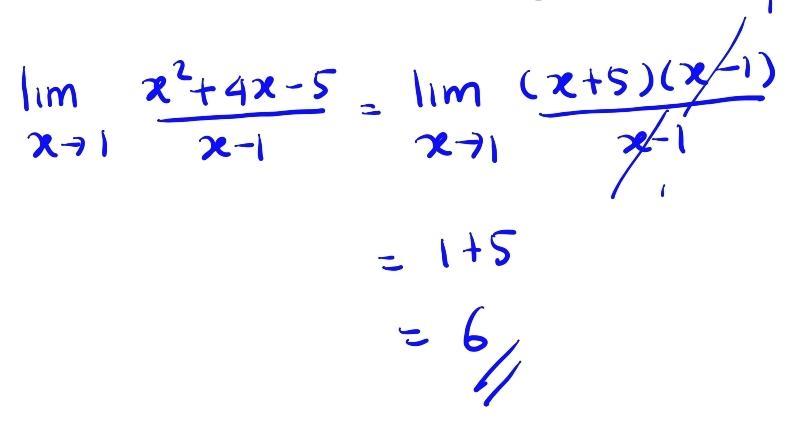 lim x→1 (x²+4x-5)/(x-1) = lim x→1 ((x+5)(x-1))/(x-1)
= 1+5
= 6